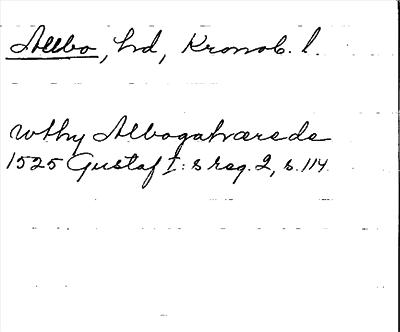 Allbo, hd, Kronob. l.
wthy Albogahærede
1525 Gustaf I:s reg. 2, s. 114.